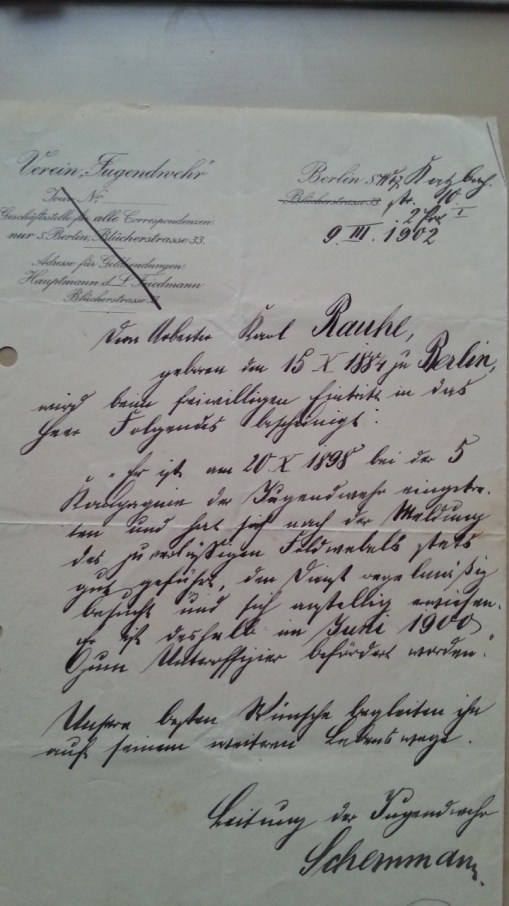 Verein „Jugendwehr"
Jour. Nr.
Geschäftsstelle für alle Correspondenzen:
nur S. Berlin, Blücherstrasse 33.
Adresse für Geldsendungen:
Hauptmann d. L. Friedmann
Blücherstrasse
Berlin S. W 47 Katzbach
Blücherstrasse 33 str. 10. I
2 Por
9. III. 1902
Dem Arbeiter Karl Rauhe,
geboren den 15 X 1884 zu Berlin,
wird beim freiwilligen Eintritt in das
Heer Folgendes bescheinigt:
„Er ist am 20 X 1898 bei der 5
Kompagnie der Jugendwehr eingetre-
ten und hat sich nach der Meldung
des zuverlässigen Feldwebels stets
gut geführt, den Dienst regelmäßig
besucht und sich anstellig erwiesen.
Er ist deshalb im Juni 1900
zum Unteroffizier befördert worden."
Unsere besten Wünsche begleiten ihn
auf seinem weiteren Lebenswege.
Leitung der Jugendwehr
Schemmann.